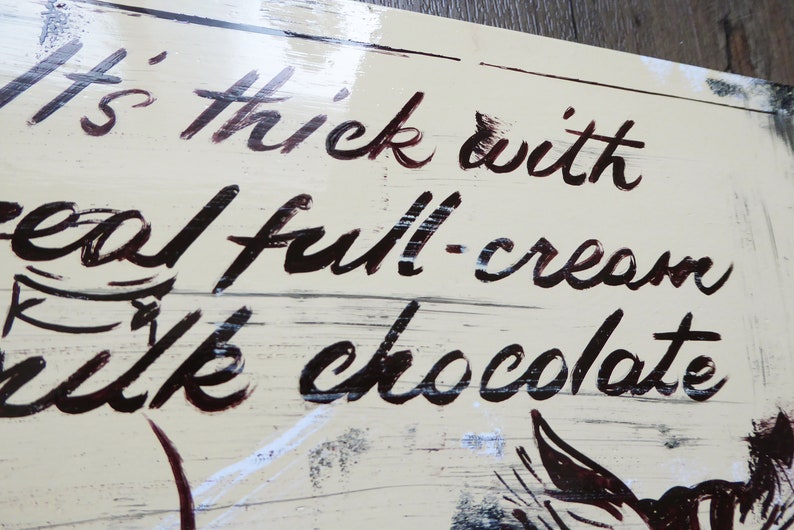 It's thick with
real full-cream
milk chocolate